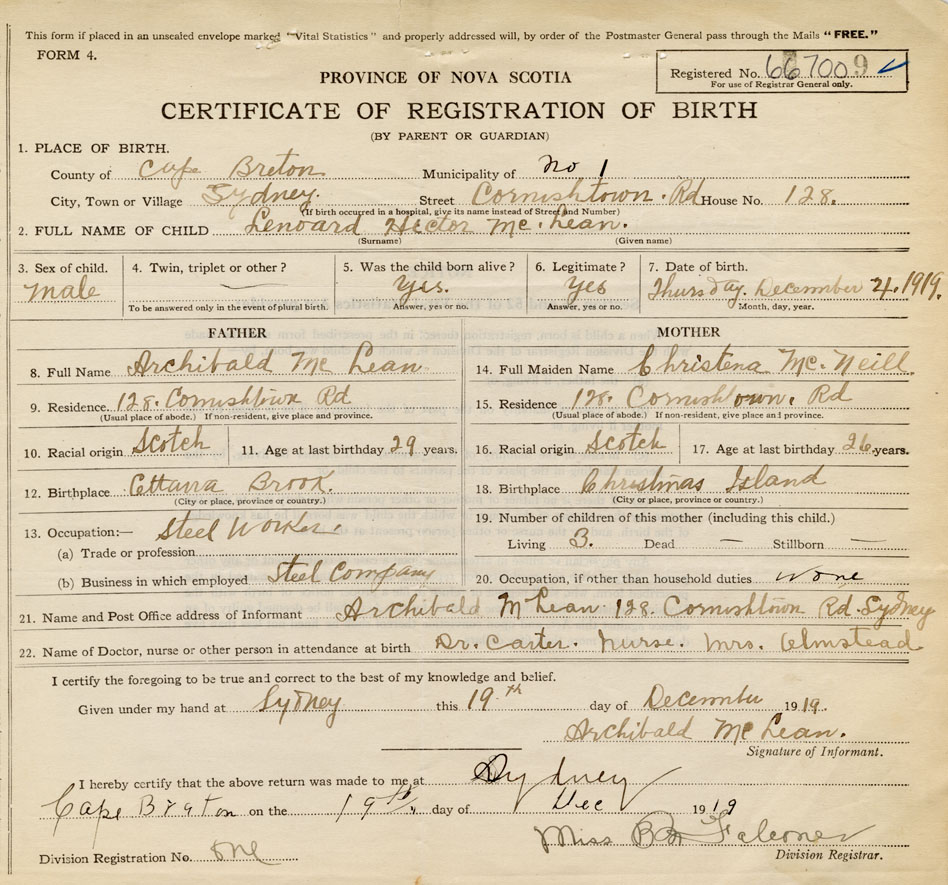 This form if placed in an unsealed envelope marked "Vital Statistics" and properly addressed will, by order of the Postmaster General pass through the Mails "FREE."
FORM 4.
PROVINCE OF NOVA SCOTIA
Registered No. 667009
For use of Registrar General only.
CERTIFICATE OF REGISTRATION OF BIRTH
(BY PARENT OR GUARDIAN)
1. PLACE OF BIRTH.
County of Cape Breton Municipality of No 1
City, Town or Village Sydney. Street Cornishtown. Rd House No. 128.
(If birth occurred in a hospital, give its name instead of Street and Number)
2. FULL NAME OF CHILD Lenoard Hector Mc. Lean.
(Surname) (Given name)
3. Sex of child. 4. Twin, triplet or other? 5. Was the child born alive? 6. Legitimate? 7. Date of birth.
male — Yes. Yes Thursday. December 4. 1919.
To be answered only in the event of plural birth. Answer, yes or no. Answer, yes or no. Month, day, year.
FATHER MOTHER
8. Full Name Archibald Mc Lean. 14. Full Maiden Name Christena Mc. Neill.
9. Residence. 128. Cornishtown Rd 15. Residence 128. Cornishtown. Rd
(Usual place of abode.) If non-resident, give place and province. (Usual place of abode.) If non-resident, give place and province.
10. Racial origin Scotch 11. Age at last birthday 29 years. 16. Racial origin Scotch 17. Age at last birthday 26 years.
12. Birthplace Ottawa Brook. 18. Birthplace Christmas Island
(City or place, province or country.) (City or place, province or country.)
13. Occupation:— Steel Worker 19. Number of children of this mother (including this child.)
(a) Trade or profession Living 3. Dead — Stillborn —
(b) Business in which employed Steel Company 20. Occupation, if other than household duties none
21. Name and Post Office address of Informant Archibald McLean. 128. Cornishtown Rd. Sydney
22. Name of Doctor, nurse or other person in attendance at birth Dr. Carter. Nurse. Mrs. Olmstead.
I certify the foregoing to be true and correct to the best of my knowledge and belief.
Given under my hand at Sydney this 19th day of December 1919.
Archibald Mc Lean.
Signature of Informant.
I hereby certify that the above return was made to me at Sydney
Cape Breton on the 19th day of Dec 1919
Miss Falconer
Division Registration No. one Division Registrar.